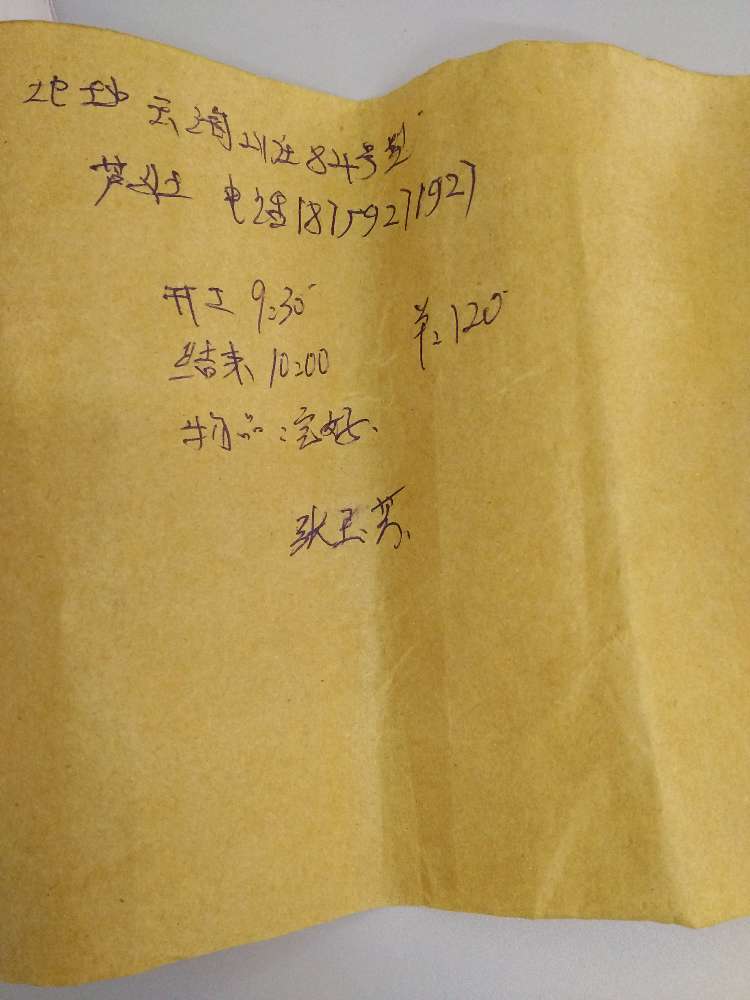 地址 云 山庄84号
芦女士 电话18759271927
开工 9:30 120
结束 10:00
物品:完好.
张玉